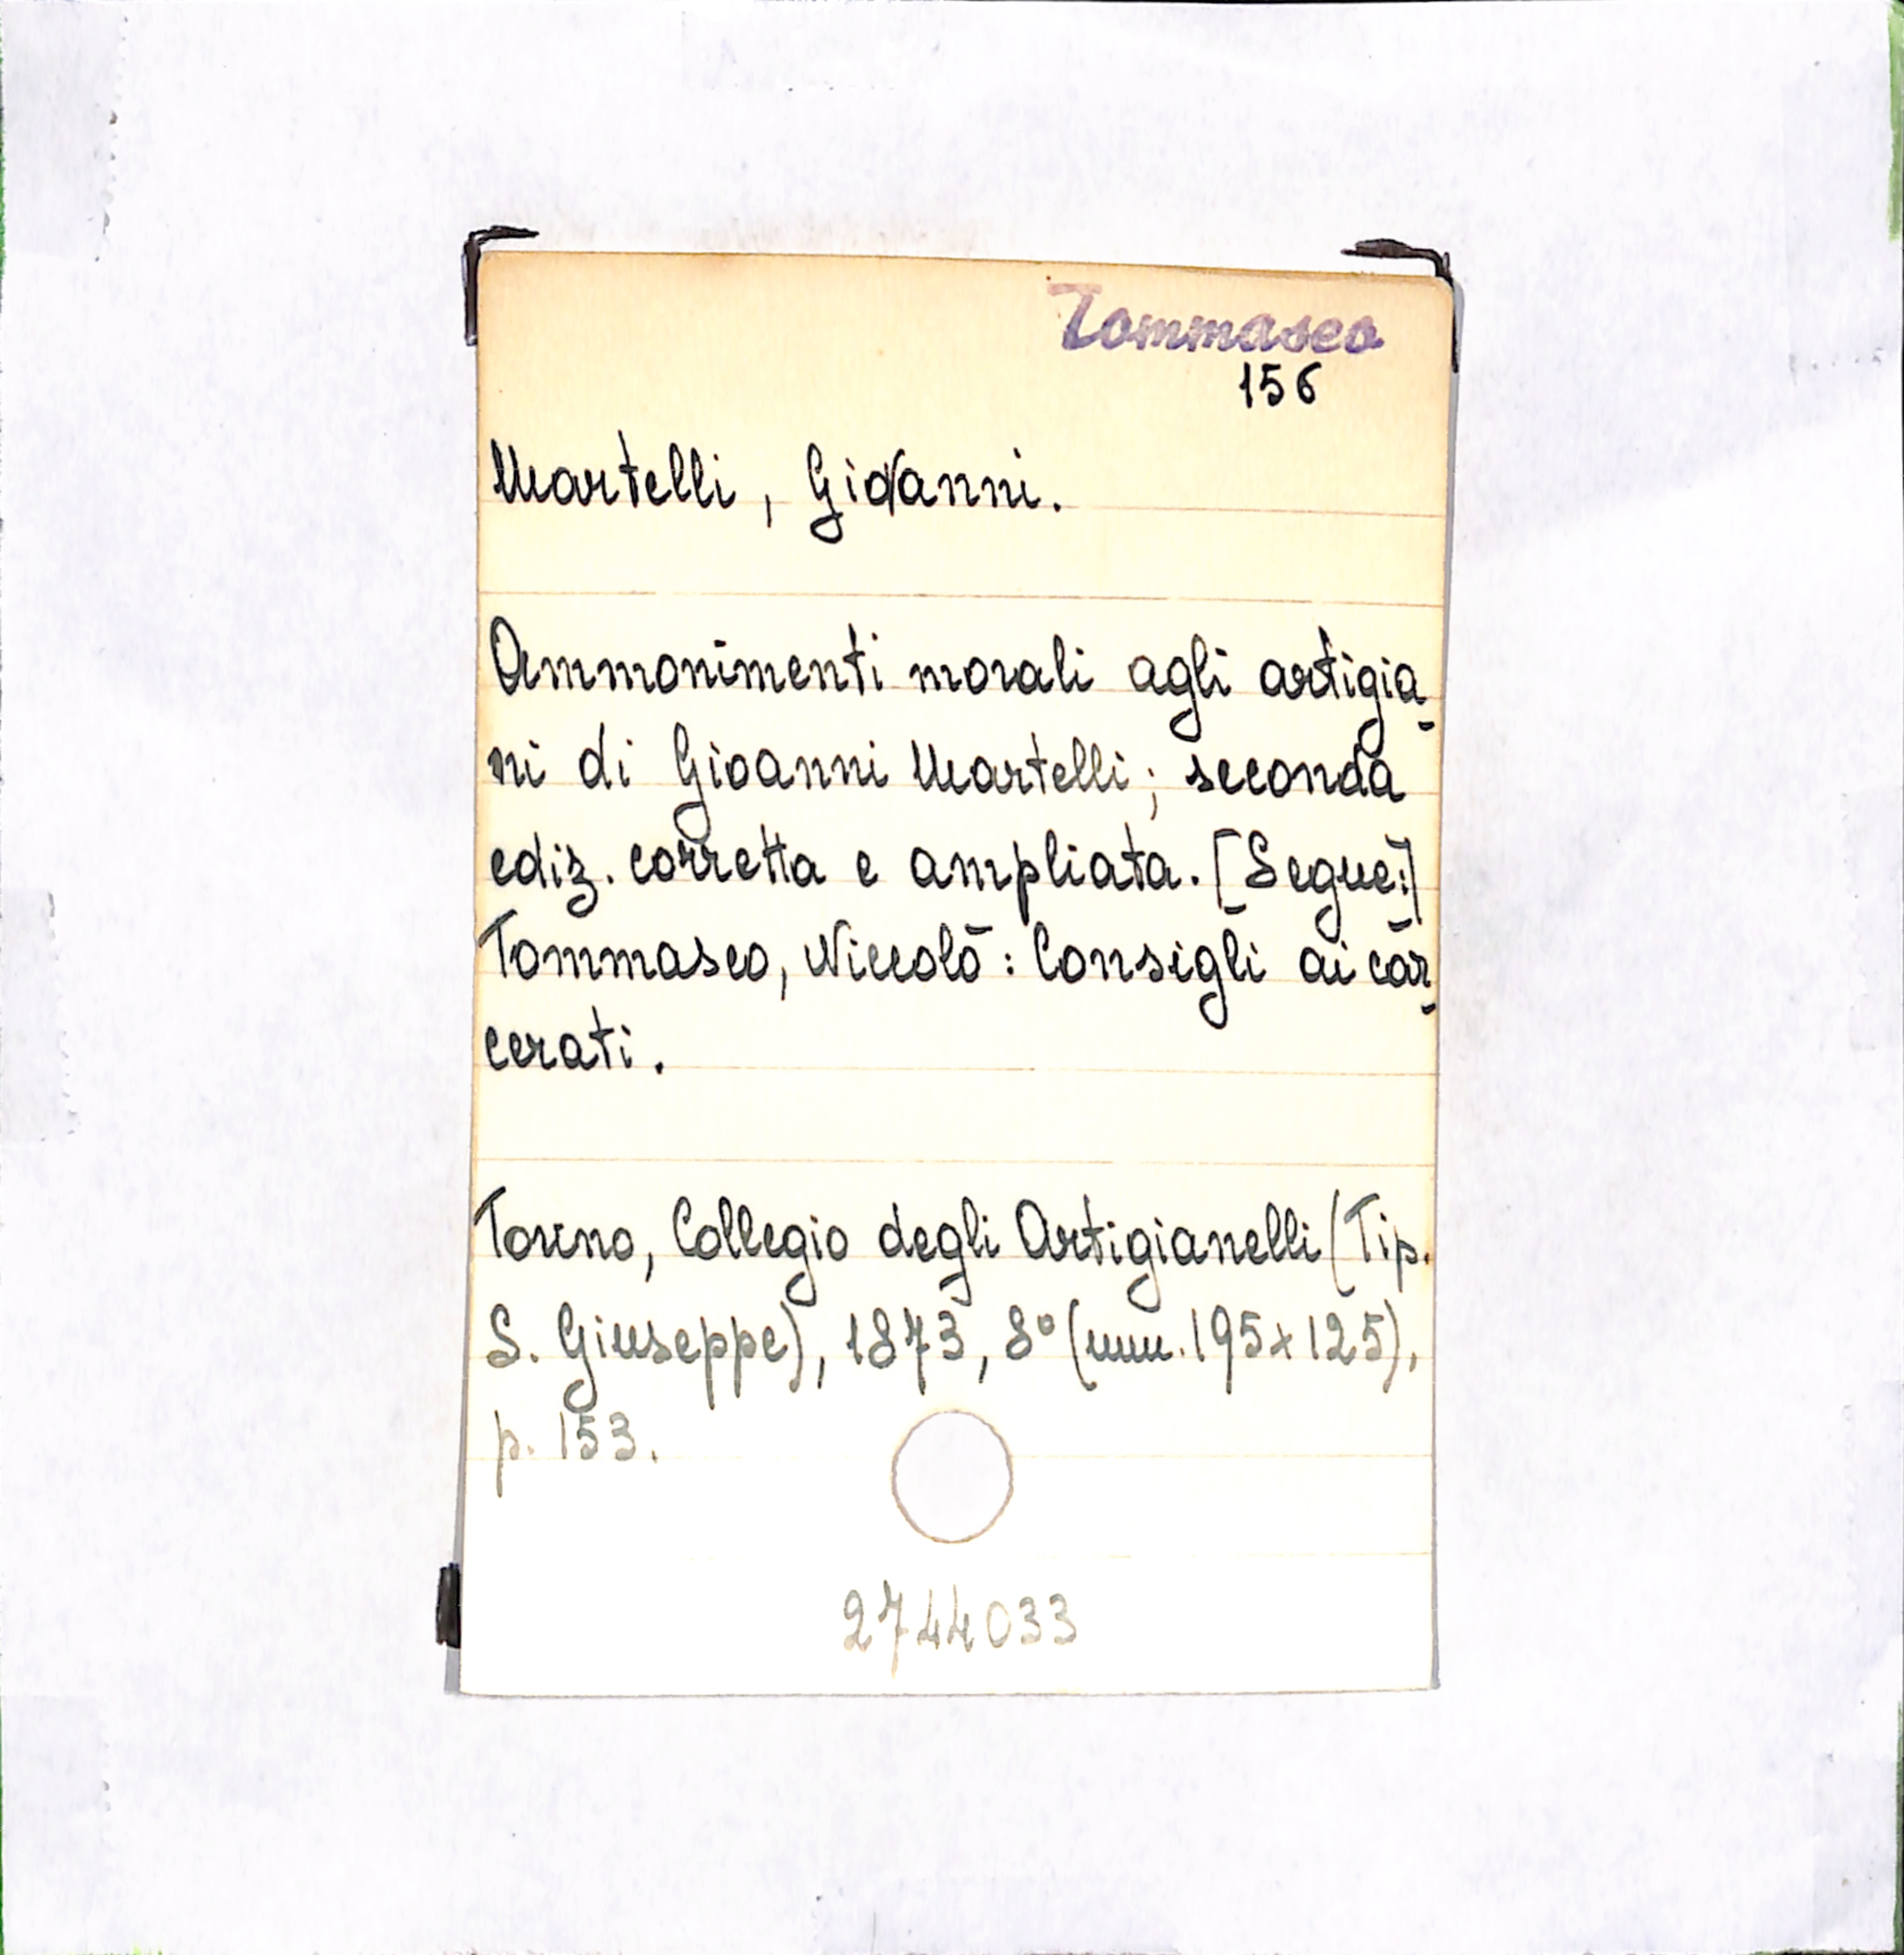 Tommaseo
156
Martelli, Giovanni.
Ammonimenti morali agli artigia-
ni di Gioanni Martelli; seconda
ediz. corretta e ampliata. [Segue:]
Tommaseo, Niccolò: Consigli ai car-
cerati.
Torino, Collegio degli Artigianelli (Tip.
S. Giuseppe), 1873, 8° (mm. 195x125),
p. 153.
2744033